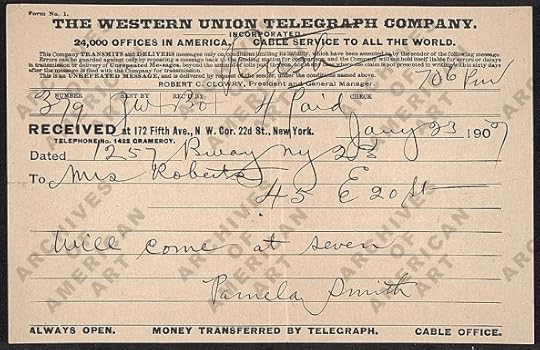 Form No. 1.
THE WESTERN UNION TELEGRAPH COMPANY.
INCORPORATED
24,000 OFFICES IN AMERICA. CABLE SERVICE TO ALL THE WORLD.
This Company TRANSMITS and DELIVERS messages only on conditions limiting its liability, which have been assented to by the sender of the following message.
Errors can be guarded against only by repeating a message back to the sending station for comparison, and the Company will not hold itself liable for errors or delays
in transmission or delivery of Unrepeated Messages, beyond the amount of tolls paid thereon, nor in any case where the claim is not presented in writing within sixty days
after the message is filed with the Company for transmission.
This is an UNREPEATED MESSAGE, and is delivered by request of the sender, under the conditions named above.
ROBERT C. CLOWRY, President and General Manager.
706 PM
NUMBER SENT BY REC'D BY CHECK
379 JW 4 Paid
RECEIVED at 172 Fifth Ave., N. W. Cor. 22d St., New York.
TELEPHONE No. 1422 GRAMERCY.
Jany 23 1909
Dated 1257 Bway ny 23
To Mrs Roberts
45 E 20 St
Will come at seven
Pamela Smith
ARCHIVES OF AMERICAN ART
ALWAYS OPEN. MONEY TRANSFERRED BY TELEGRAPH. CABLE OFFICE.